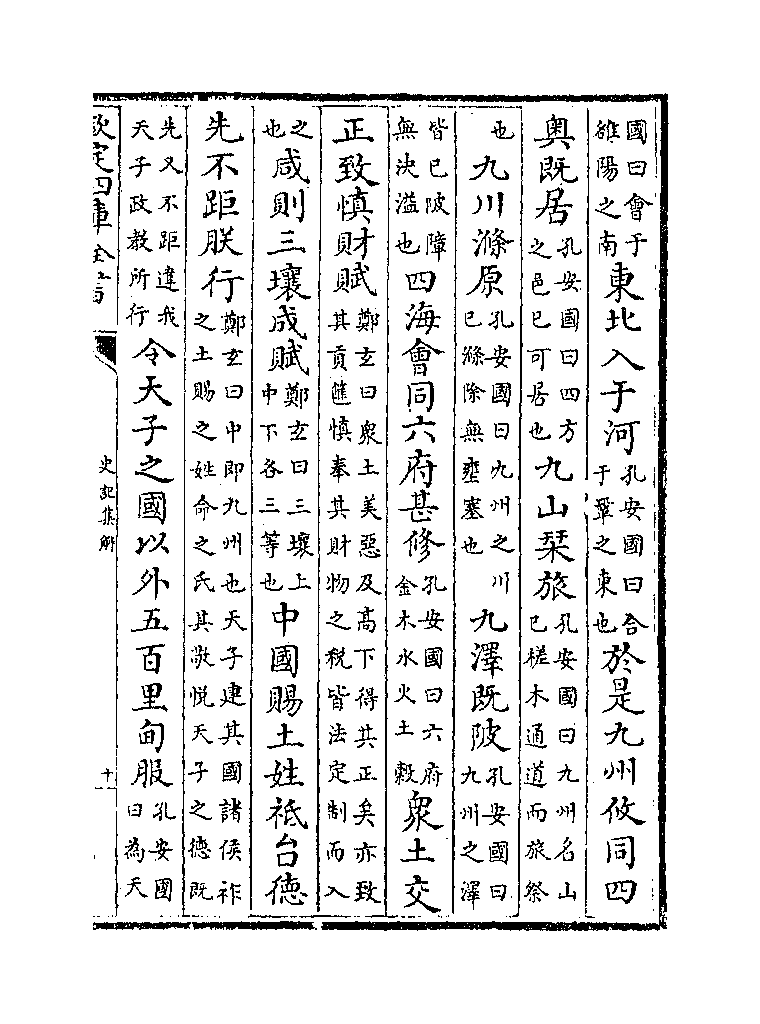 國曰會于雒陽之南東北入于河孔安國曰合于鞏之東也於是九州攸同四
奥既居孔安國曰四方之邑已可居也九山栞旅孔安國曰九州名山已槎木通道而旅祭
也九川滌原孔安國曰九州之川已滌除無壅塞也九澤既陂孔安國曰九州之澤
皆已陂障無決溢也四海會同六府甚修孔安國曰六府金木水火土榖衆土交
正致慎財賦鄭玄曰衆土美惡及高下得其正矣亦致其貢篚慎奉其財物之税皆法定制而入
之也咸則三壤成賦鄭玄曰三壤上中下各三等也中國賜土姓祗台德
先不距朕行鄭玄曰中即九州也天子建其國諸侯祚之土賜之姓命之氏其敬悦天子之德既
先又不距違我天子政教所行令天子之國以外五百里甸服孔安國曰為天
欽定四庫全書
史記集解
十